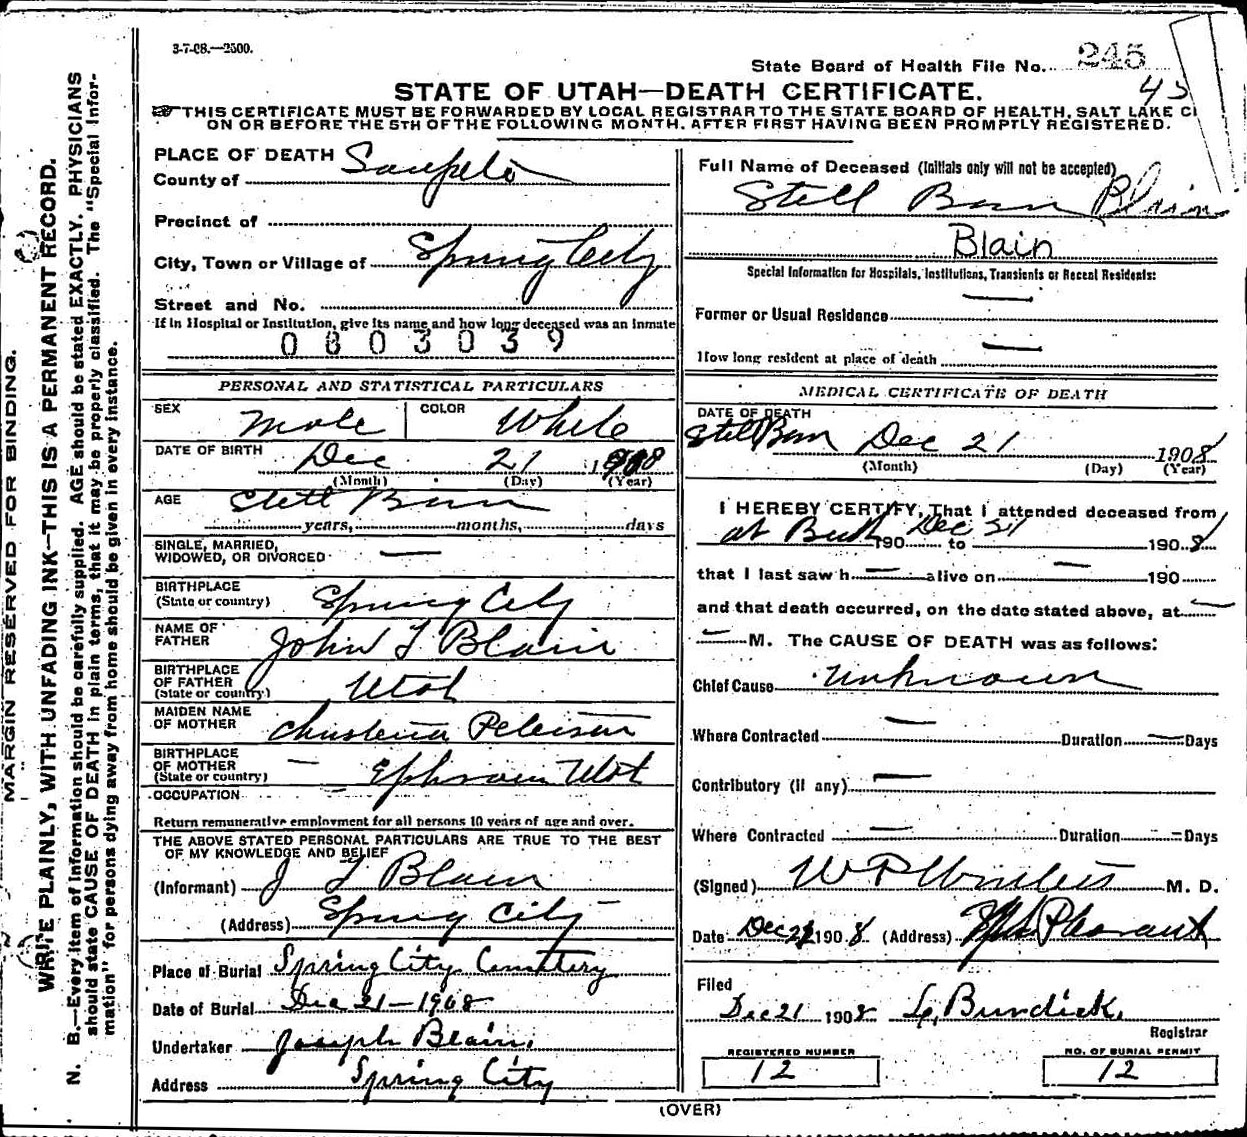 3-7-08.—2500.
State Board of Health File No. 245
45
STATE OF UTAH—DEATH CERTIFICATE.
THIS CERTIFICATE MUST BE FORWARDED BY LOCAL REGISTRAR TO THE STATE BOARD OF HEALTH, SALT LAKE CI
ON OR BEFORE THE 5TH OF THE FOLLOWING MONTH, AFTER FIRST HAVING BEEN PROMPTLY REGISTERED.
PLACE OF DEATH
County of Sanpete
Precinct of
City, Town or Village of Spring City
Street and No.
If in Hospital or Institution, give its name and how long deceased was an inmate
0803039
PERSONAL AND STATISTICAL PARTICULARS
SEX Male COLOR White
DATE OF BIRTH Dec 21 1908
(Month) (Day) (Year)
AGE Still Born
years, months, days
SINGLE, MARRIED,
WIDOWED, OR DIVORCED —
BIRTHPLACE
(State or country) Spring City
NAME OF
FATHER John T Blain
BIRTHPLACE
OF FATHER
(State or country) Utah
MAIDEN NAME
OF MOTHER Christena Peterson
BIRTHPLACE
OF MOTHER
(State or country) — Ephraim Utah
OCCUPATION
Return remunerative employment for all persons 10 years of age and over.
THE ABOVE STATED PERSONAL PARTICULARS ARE TRUE TO THE BEST
OF MY KNOWLEDGE AND BELIEF
(Informant) J T Blain
(Address) Spring City
Place of Burial Spring City Cemetery
Date of Burial Dec 21—1908
Undertaker Joseph Blain.
Address Spring City
Full Name of Deceased (Initials only will not be accepted)
Still Born Blain
Blain
Special Information for Hospitals, Institutions, Transients or Recent Residents:
Former or Usual Residence —
How long resident at place of death —
MEDICAL CERTIFICATE OF DEATH
DATE OF DEATH
Still Born Dec 21 1908
(Month) (Day) (Year)
I HEREBY CERTIFY, That I attended deceased from
at Birth 190 to Dec 21 1908
that I last saw h — alive on — 190
and that death occurred, on the date stated above, at —
— M. The CAUSE OF DEATH was as follows:
Chief Cause Unknown
Where Contracted — Duration — Days
Contributory (if any) —
Where Contracted — Duration — Days
(Signed) W P Winters M. D.
Date Dec 21 1908 (Address) Mt Pleasant
Filed
Dec 21 1908 L. Burdick.
Registrar
REGISTERED NUMBER
12
NO. OF BURIAL PERMIT
12
(OVER)
MARGIN RESERVED FOR BINDING.
WRITE PLAINLY, WITH UNFADING INK—THIS IS A PERMANENT RECORD.
N. B.—Every item of information should be carefully supplied. AGE should be stated EXACTLY. PHYSICIANS
should state CAUSE OF DEATH in plain terms, that it may be properly classified. The "Special Infor-
mation" for persons dying away from home should be given in every instance.